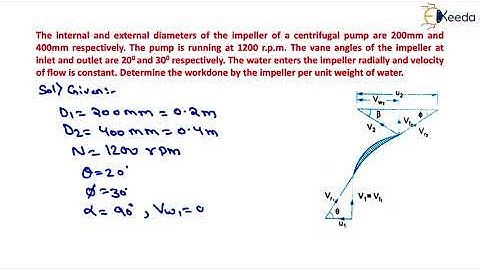 Ekeeda
The internal and external diameters of the impeller of a centrifugal pump are 200mm and
400mm respectively. The pump is running at 1200 r.p.m. The vane angles of the impeller at
inlet and outlet are 20⁰ and 30⁰ respectively. The water enters the impeller radially and velocity
of flow is constant. Determine the workdone by the impeller per unit weight of water.
Sol) Given:-
D₁ = 200mm = 0.2m
D₂ = 400mm = 0.4m
N = 1200 rpm
θ = 20°
ϕ = 30°
α = 90°, Vw₁ = 0
u₂
Vw₂
β
ϕ
V₂
Vf₂
Vr₂
Vr₁
V₁=Vf₁
θ
u₁